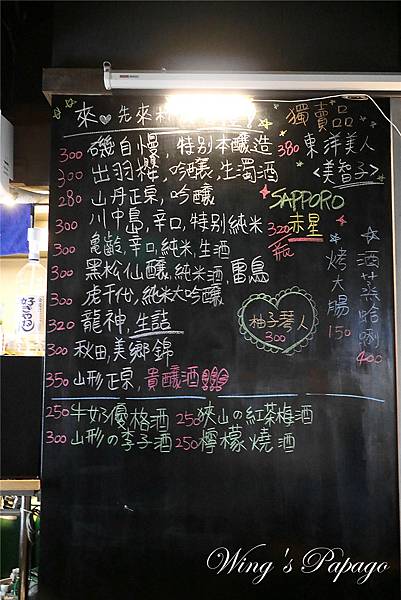 來♡先來杯
300 磯自慢,特別本釀造
300 出羽桜,吟釀,生濁酒
280 山丹正宗,吟釀
300 川中島,辛口,特別純米
300 亀齡,辛口,純米,生酒
300 黑松仙釀,純米酒,雷鳥
300 虎千代,純米大吟釀
320 龍神,生詰
300 秋田,美郷錦
350 山形正宗,貴釀酒
250 牛奶優格酒 250 狹山の紅茶梅酒
300 山形の李子酒 250 檸檬燒酒
獨賣品
380 東洋美人
<美智子>
SAPPORO
赤星
320 瓶
柚子琴人
300
烤大腸
150
酒蒸蛤唎
400
Wing's Papago